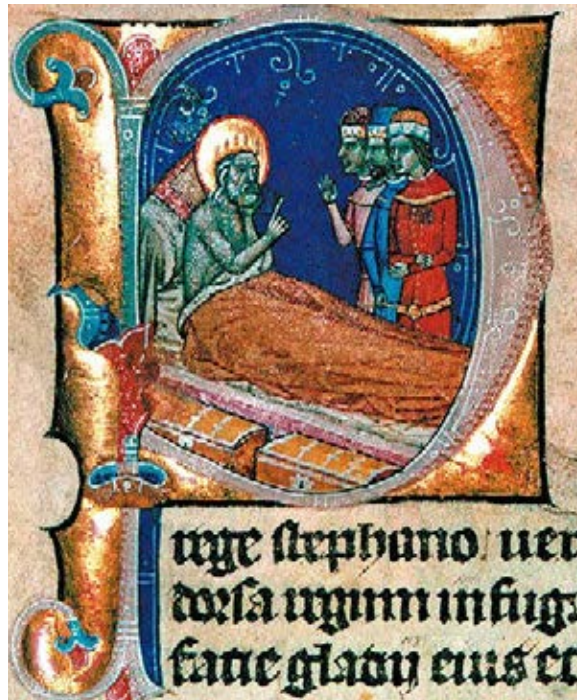 P
rege stephano uer
dorsa regum in fuga
facie gladij eius et